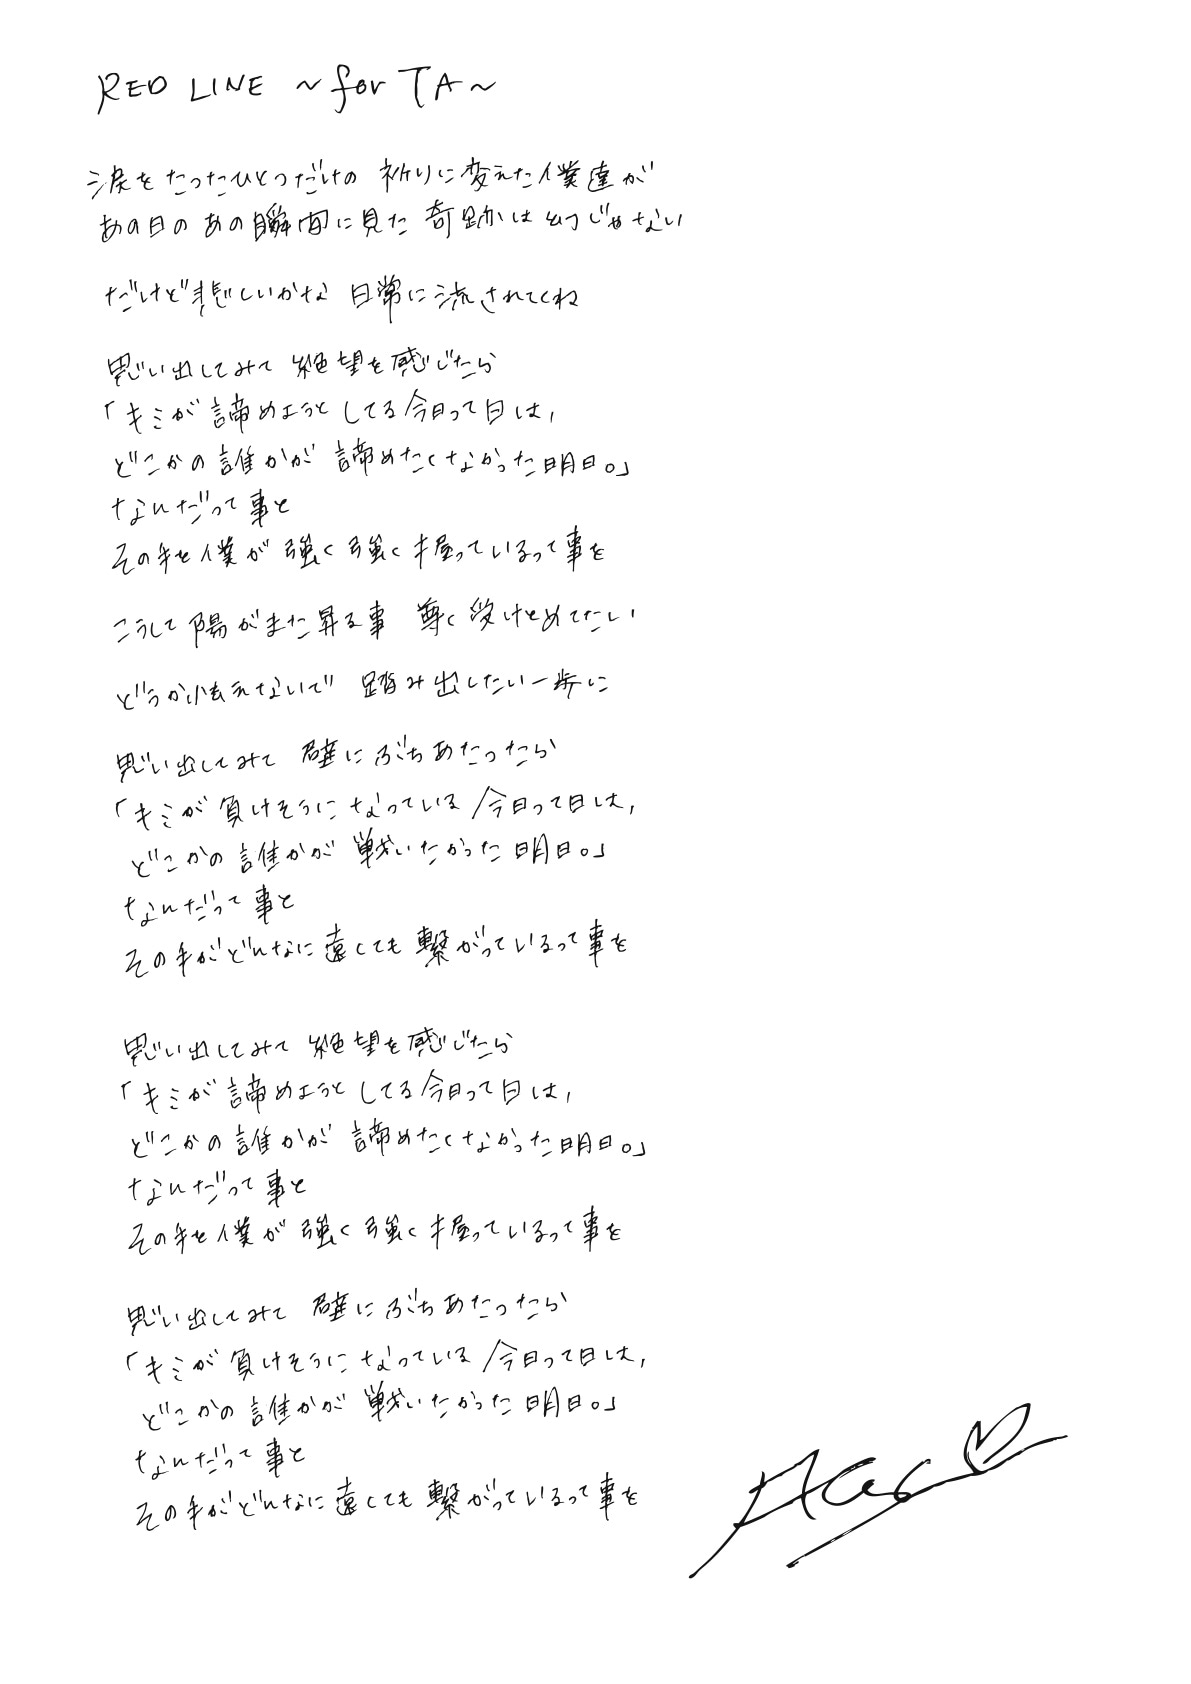 RED LINE ～for TA～
涙をたったひとつだけの 祈りに変えた僕達が
あの日のあの瞬間に見た 奇跡は幻じゃない
だけど悲しいかな 日常に流されてくね
思い出してみて 絶望を感じたら
「キミが諦めようとしてる今日って日は,
どこかの誰かが 諦めたくなかった明日。」
なんだって事と
その手を僕が強く強く握っているって事を
こうして陽がまた昇る事 尊く受けとめてたい
どうか怯えないで 踏み出したい一歩に
思い出してみて 壁にぶちあたったら
「キミが負けそうになっている今日って日は,
どこかの誰かが 戦いたかった明日。」
なんだって事と
その手がどんなに遠くても繋がっているって事を
思い出してみて 絶望を感じたら
「キミが諦めようとしてる今日って日は,
どこかの誰かが 諦めたくなかった明日。」
なんだって事と
その手を僕が強く強く握っているって事を
思い出してみて 壁にぶちあたったら
「キミが負けそうになっている今日って日は,
どこかの誰かが 戦いたかった明日。」
なんだって事と
その手がどんなに遠くても繋がっているって事を